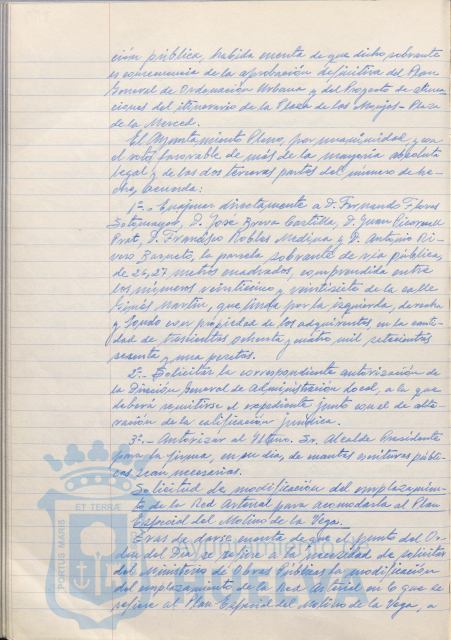 ción pública, habida cuenta de que dicho sobrante
es consecuencia de la aprobación definitiva del Plan
General de Ordenación Urbana y del Proyecto de
ciones del itinerario de la Plaza de las Monjas-Plaza
de la Merced.
El Ayuntamiento Pleno, por unanimidad, y con
el voto favorable de más de la mayoría absoluta
legal y de las dos terceras partes del número de he-
cho, acuerda:
1º.- Enajenar directamente a D. Fernando Flores
Sotomayor, D. José Brera Castilla, D. Juan
Prat, D. Francisco Robles Medina y D. Antonio Ri-
vero Barneto, la parcela sobrante de vía pública,
de 24,27 metros cuadrados, comprendida entre
los números veinticinco y veintisiete de la calle
Ginés Martín, que linda por la izquierda, derecha
y fondo con propiedad de los adquirentes, en la canti-
dad de trescientas ochenta y cuatro mil setecientas
sesenta y una pesetas.
2º.- Solicitar la correspondiente autorización de
la Dirección General de Administración Local, a la que
deberá remitirse el expediente junto con el de alte-
ración de la calificación jurídica.
3º.- Autorizar al Iltmo. Sr. Alcalde Presidente
para la firma, en su día, de cuantas escrituras públi-
cas sean necesarias.
Solicitud de modificación del emplazamien-
to de la Red Arterial para acomodarla al Plan
Especial del Molino de la Vega.
Tras de darse cuenta de que el punto del Or-
den del Día se refiere a la necesidad de solicitar
del Ministerio de Obras Públicas la modificación
del emplazamiento de la Red Arterial en lo que se
refiere al Plan Especial del Molino de la Vega, a
PORTUS MARIS
ET TERRÆ